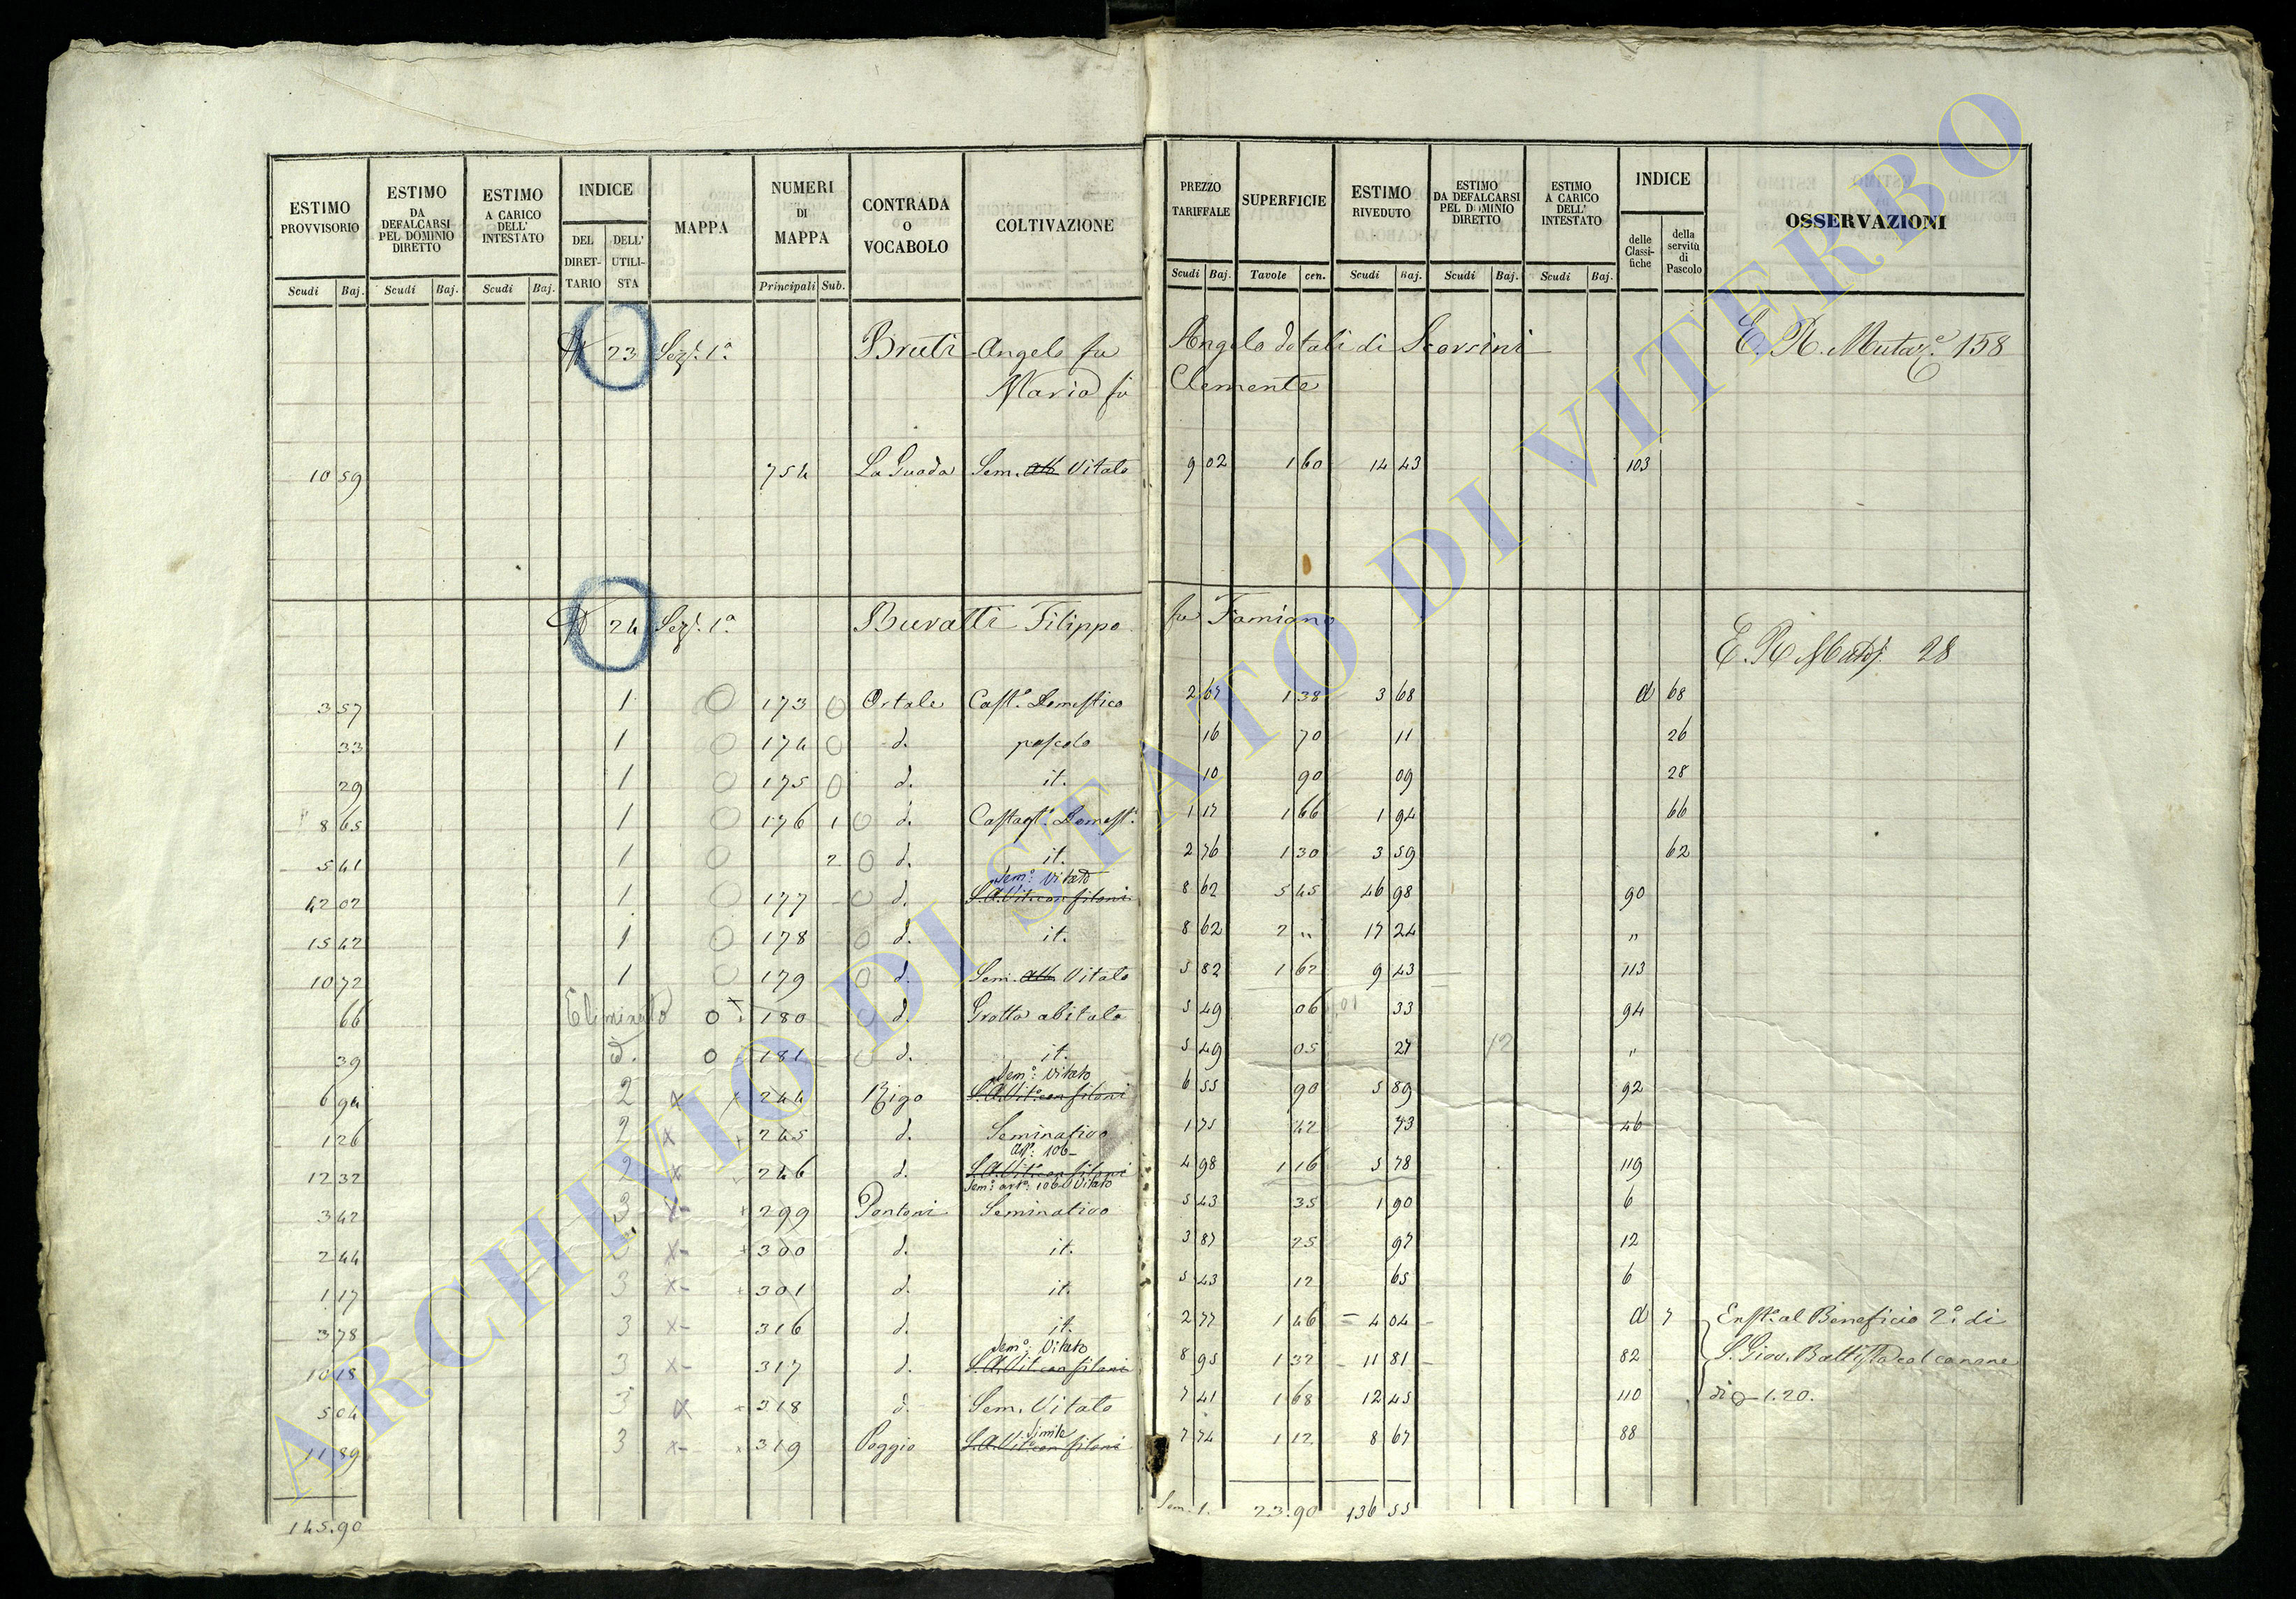 ESTIMO PROVVISORIO | ESTIMO DA DEFALCARSI PEL DOMINIO DIRETTO | ESTIMO A CARICO DELL' INTESTATO | INDICE | MAPPA | NUMERI DI MAPPA | CONTRADA O VOCABOLO | COLTIVAZIONE | PREZZO TARIFFALE | SUPERFICIE | ESTIMO RIVEDUTO | ESTIMO DA DEFALCARSI PEL DOMINIO DIRETTO | ESTIMO A CARICO DELL' INTESTATO | INDICE | OSSERVAZIONI
DEL DIRETTARIO | DELL' UTILISTA | delle Classifiche | della servitù di Pascolo
Scudi | Baj. | Scudi | Baj. | Scudi | Baj. | Principali | Sub. | Scudi | Baj. | Tavole | cen. | Scudi | Baj. | Scudi | Baj. | Scudi | Baj.
23 Sez. 1a. Bruti Angelo fu Angelo dotali di Scorsini E. R. Mutaz.e 158
Maria fu Clemente
10 59 754 La Guada Sem. Vitato 9 02 1 60 14 43 103
24 Sez. 1a. Buratti Filippo fu Famiano E. R. 28
3 57 1 173 0 Ortale Cast.o Domestico 2 67 1 38 3 68 a 68
33 1 174 0 d. pascolo 16 70 11 26
29 1 175 0 d. it. 10 90 09 28
8 65 1 176 1 0 d. Castag.o Domest.o 1 17 1 66 1 94 66
5 41 1 2 0 d. it. 2 76 1 30 3 59 62
Sem.o Vitato
42 02 1 177 0 d. S.A.Vit. con filoni 8 62 5 45 46 98 90
15 42 1 178 0 d. it. 8 62 2 " 17 24 "
10 72 1 179 0 d. Sem. Alb. Vitato 5 82 1 62 9 43 113
66 Eliminato 0 180 0 d. Grotta abitata 5 49 06 33 94
39 d. 0 181 0 d. it. 5 49 05 27 "
Sem.o Vitato
6 94 2 x 244 Rigo S.A.Vit.o con filoni 6 55 90 5 89 92
1 26 2 x 245 d. Seminativo 1 75 42 73 46
art. 106
12 32 2 x 246 d. S.A.Vit.o con filoni 4 98 1 16 5 78 119
Sem.o art.o 106 Vitato
3 42 3 x 299 Pontoni Seminativo 5 43 35 1 90 6
2 44 x 300 d. it. 3 87 25 97 12
1 17 3 x 301 d. it. 5 43 12 65 6
3 78 3 x 316 d. it. 2 77 1 46 4 04 a 7 Enft.o al Beneficio 2.o di
Sem.o Vitato
10 18 3 x 317 d. S.A.Vit con filoni 8 95 1 32 11 81 82 S. Giov. Battista col canone
5 04 3 x 318 d. Sem. Vitato 7 41 1 68 12 45 110 di 1.20.
Simile
11 89 3 x 319 Poggio S.A.Vit.o con filoni 7 74 1 12 8 67 88
145.90 Sem. 1. 23.90 136 55
ARCHIVIO DI STATO DI VITERBO